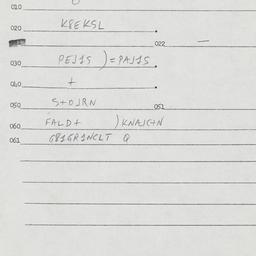 010
020 K8EKSL
022 —
030 PEJ1S )=PAJ1S
040 +
050 S+OJRN 051
060 FALD+ )KNAJC+N
061 GB1GR1NCLT Q